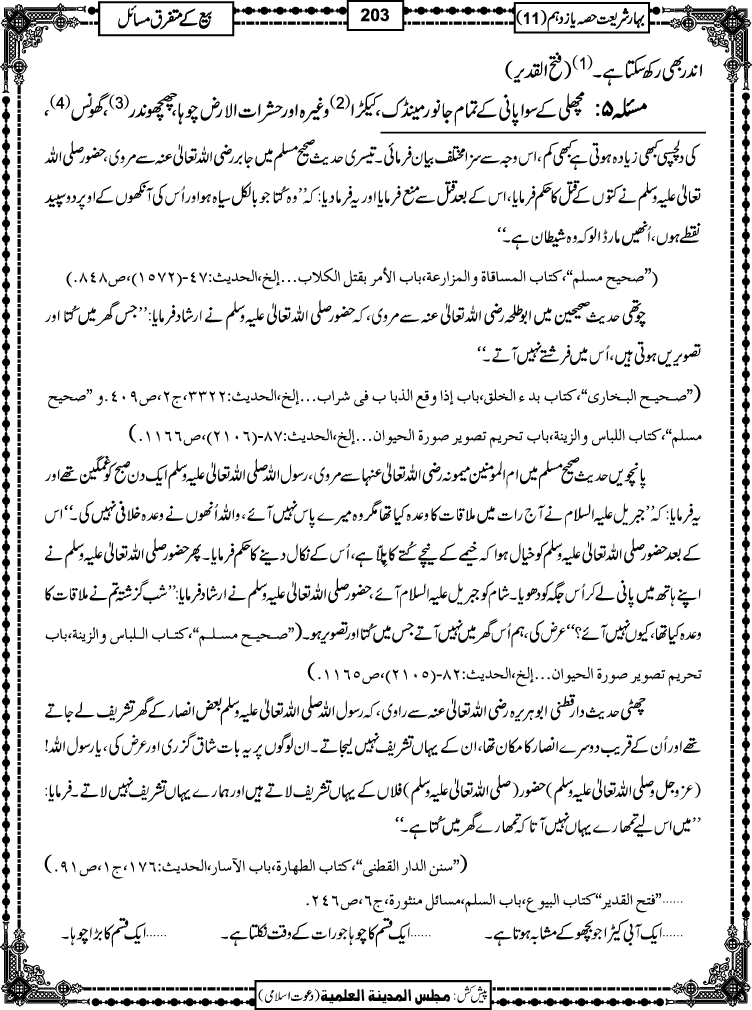 بہار شریعت حصہ یازدہم (11)
203
بیع کے متفرق مسائل
اندر بھی رکھ سکتا ہے۔ (1) (فتح القدیر)
مسئلہ ۵: مچھلی کے سوا پانی کے تمام جانور مینڈک، کیکڑا (2) وغیرہ اور حشرات الارض چوہا، چھچھوندر (3)، گھونس (4)،
کی دلچسپی کبھی زیادہ ہوتی ہے کبھی کم، اس وجہ سے سزا مختلف بیان فرمائی۔ تیسری حدیث صحیح مسلم میں جابر رضی اللہ تعالیٰ عنہ سے مروی، حضور صلی اللہ
تعالیٰ علیہ وسلم نے کتوں کے قتل کا حکم فرمایا، اس کے بعد قتل سے منع فرمایا اور یہ فرمادیا: کہ ’’وہ کُتا جو بالکل سیاہ ہو اور اُس کی آنکھوں کے اوپر دو سپید
نقطے ہوں، اُنھیں مار ڈالو کہ وہ شیطان ہے۔‘‘
(’’صحیح مسلم‘‘، کتاب المساقاة والمزارعة، باب الأمر بقتل الکلاب...إلخ، الحدیث: ۴۷-(۱۵۷۲)، ص۸۴۸.)
چوتھی حدیث صحیحین میں ابوطلحہ رضی اللہ تعالیٰ عنہ سے مروی، کہ حضور صلی اللہ تعالیٰ علیہ وسلم نے ارشاد فرمایا: ’’جس گھر میں کُتا اور
تصویریں ہوتی ہیں، اُس میں فرشتے نہیں آتے۔‘‘
(’’صحیح البخاری‘‘، کتاب بدء الخلق، باب إذا وقع الذباب فی شراب...إلخ، الحدیث: ۳۳۲۲، ج۲، ص۴۰۹. و ’’صحیح
مسلم‘‘، کتاب اللباس والزینة، باب تحریم تصویر صورة الحیوان...إلخ، الحدیث: ۸۷-(۲۱۰۶)، ص۱۱۶۶.)
پانچویں حدیث صحیح مسلم میں ام المومنین میمونہ رضی اللہ تعالیٰ عنہا سے مروی، رسول اللہ صلی اللہ تعالیٰ علیہ وسلم ایک دن صبح کو غمگین تھے اور
یہ فرمایا: کہ ’’جبریل علیہ السلام نے آج رات میں ملاقات کا وعدہ کیا تھا مگر وہ میرے پاس نہیں آئے، واللہ اُنھوں نے وعدہ خلافی نہیں کی۔‘‘ اس
کے بعد حضور صلی اللہ تعالیٰ علیہ وسلم کو خیال ہوا کہ خیمے کے نیچے کُتے کا پلا ہے، اُس کے نکال دینے کا حکم فرمایا۔ پھر حضور صلی اللہ تعالیٰ علیہ وسلم نے
اپنے ہاتھ میں پانی لے کر اُس جگہ کو دھویا۔ شام کو جبریل علیہ السلام آئے، حضور صلی اللہ تعالیٰ علیہ وسلم نے ارشاد فرمایا: ’’شب گزشتہ تم نے ملاقات کا
وعدہ کیا تھا، کیوں نہیں آئے؟‘‘ عرض کی، ہم اُس گھر میں نہیں آتے جس میں کُتا اور تصویر ہو۔ (’’صحیح مسلم‘‘، کتاب اللباس والزینة، باب
تحریم تصویر صورة الحیوان...إلخ، الحدیث: ۸۲-(۲۱۰۵)، ص۱۱۶۵.)
چھٹی حدیث دارقطنی ابوہریرہ رضی اللہ تعالیٰ عنہ سے راوی، کہ رسول اللہ صلی اللہ تعالیٰ علیہ وسلم بعض انصار کے گھر تشریف لے جاتے
تھے اور اُن کے قریب دوسرے انصار کا مکان تھا، ان کے یہاں تشریف نہیں لیجاتے۔ ان لوگوں پر یہ بات شاق گزری اور عرض کی، یا رسول اللہ!
(عزوجل وصلی اللہ تعالیٰ علیہ وسلم) حضور (صلی اللہ تعالیٰ علیہ وسلم) فلاں کے یہاں تشریف لاتے ہیں اور ہمارے یہاں تشریف نہیں لاتے۔ فرمایا:
’’میں اس لیے تمھارے یہاں نہیں آتا کہ تمھارے گھر میں کُتا ہے۔‘‘
(’’سنن الدار القطنی‘‘، کتاب الطھارة، باب الآسار، الحدیث: ۱۷۶، ج۱، ص۹۱.)
......’’فتح القدیر‘‘ کتاب البیوع، باب السلم، مسائل منثورة، ج۶، ص۲۴۶.
......ایک آبی کیڑا جو بچھو کے مشابہ ہوتا ہے۔ ......ایک قسم کا چوہا جو رات کے وقت نکلتا ہے۔ ......ایک قسم کا بڑا چوہا۔
پیش کش: مجلس المدینة العلمیة (دعوت اسلامی)